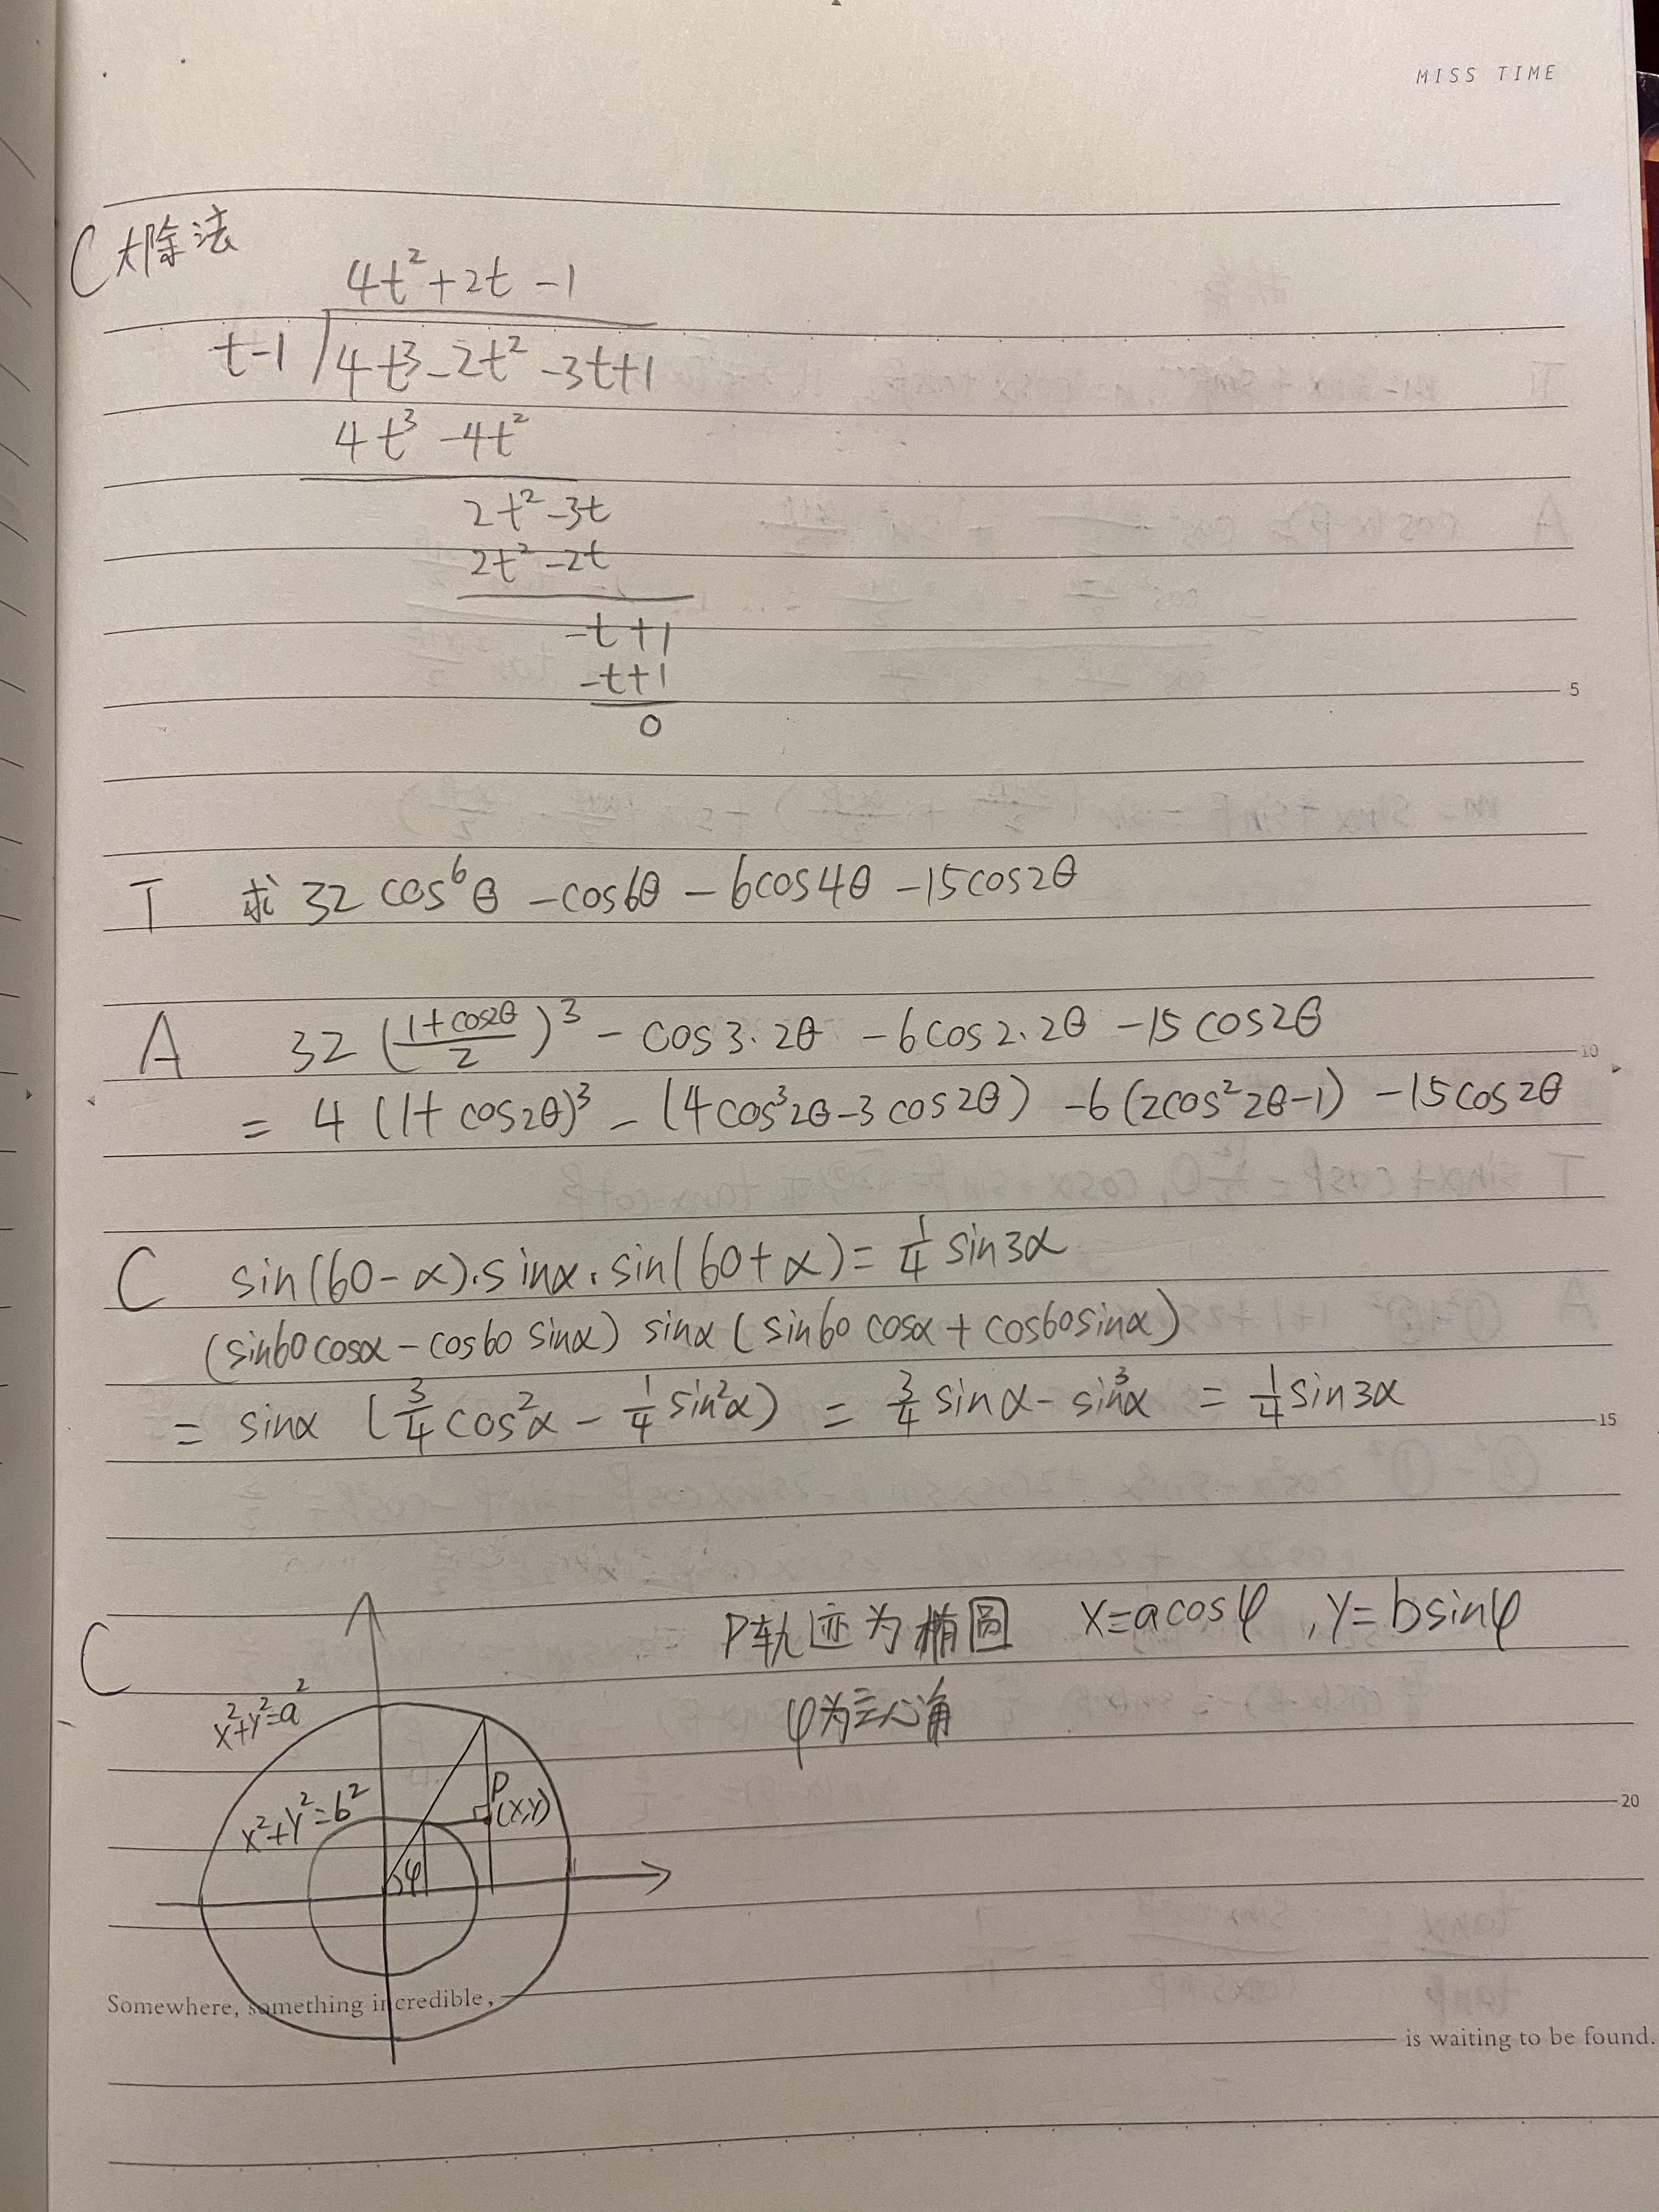 MISS TIME
C 大除法
4t²+2t-1
t-1 4t³-2t²-3t+1
4t³-4t²
2t²-3t
2t²-2t
-t+1
-t+1
0
5
T 求 32cos⁶θ-cos6θ-6cos4θ-15cos2θ
A 32(\frac{1+cos2θ}{2})³-cos3·2θ-6cos2·2θ-15cos2θ
10
=4(1+cos2θ)³-(4cos³2θ-3cos2θ)-6(2cos²2θ-1)-15cos2θ
C sin(60-α)·sinα·sin(60+α)=\frac{1}{4}sin3α
(sin60cosα-cos60sinα)sinα(sin60cosα+cos60sinα)
=sinα(\frac{3}{4}cos²α-\frac{1}{4}sin²α)=\frac{3}{4}sinα-sin³α=\frac{1}{4}sin3α
15
C P轨迹为椭圆 x=acosφ,y=bsinφ
x²+y²=a²
φ为离心角
x²+y²=b²
P
(x,y)
φ
20
Somewhere, something incredible,
is waiting to be found.